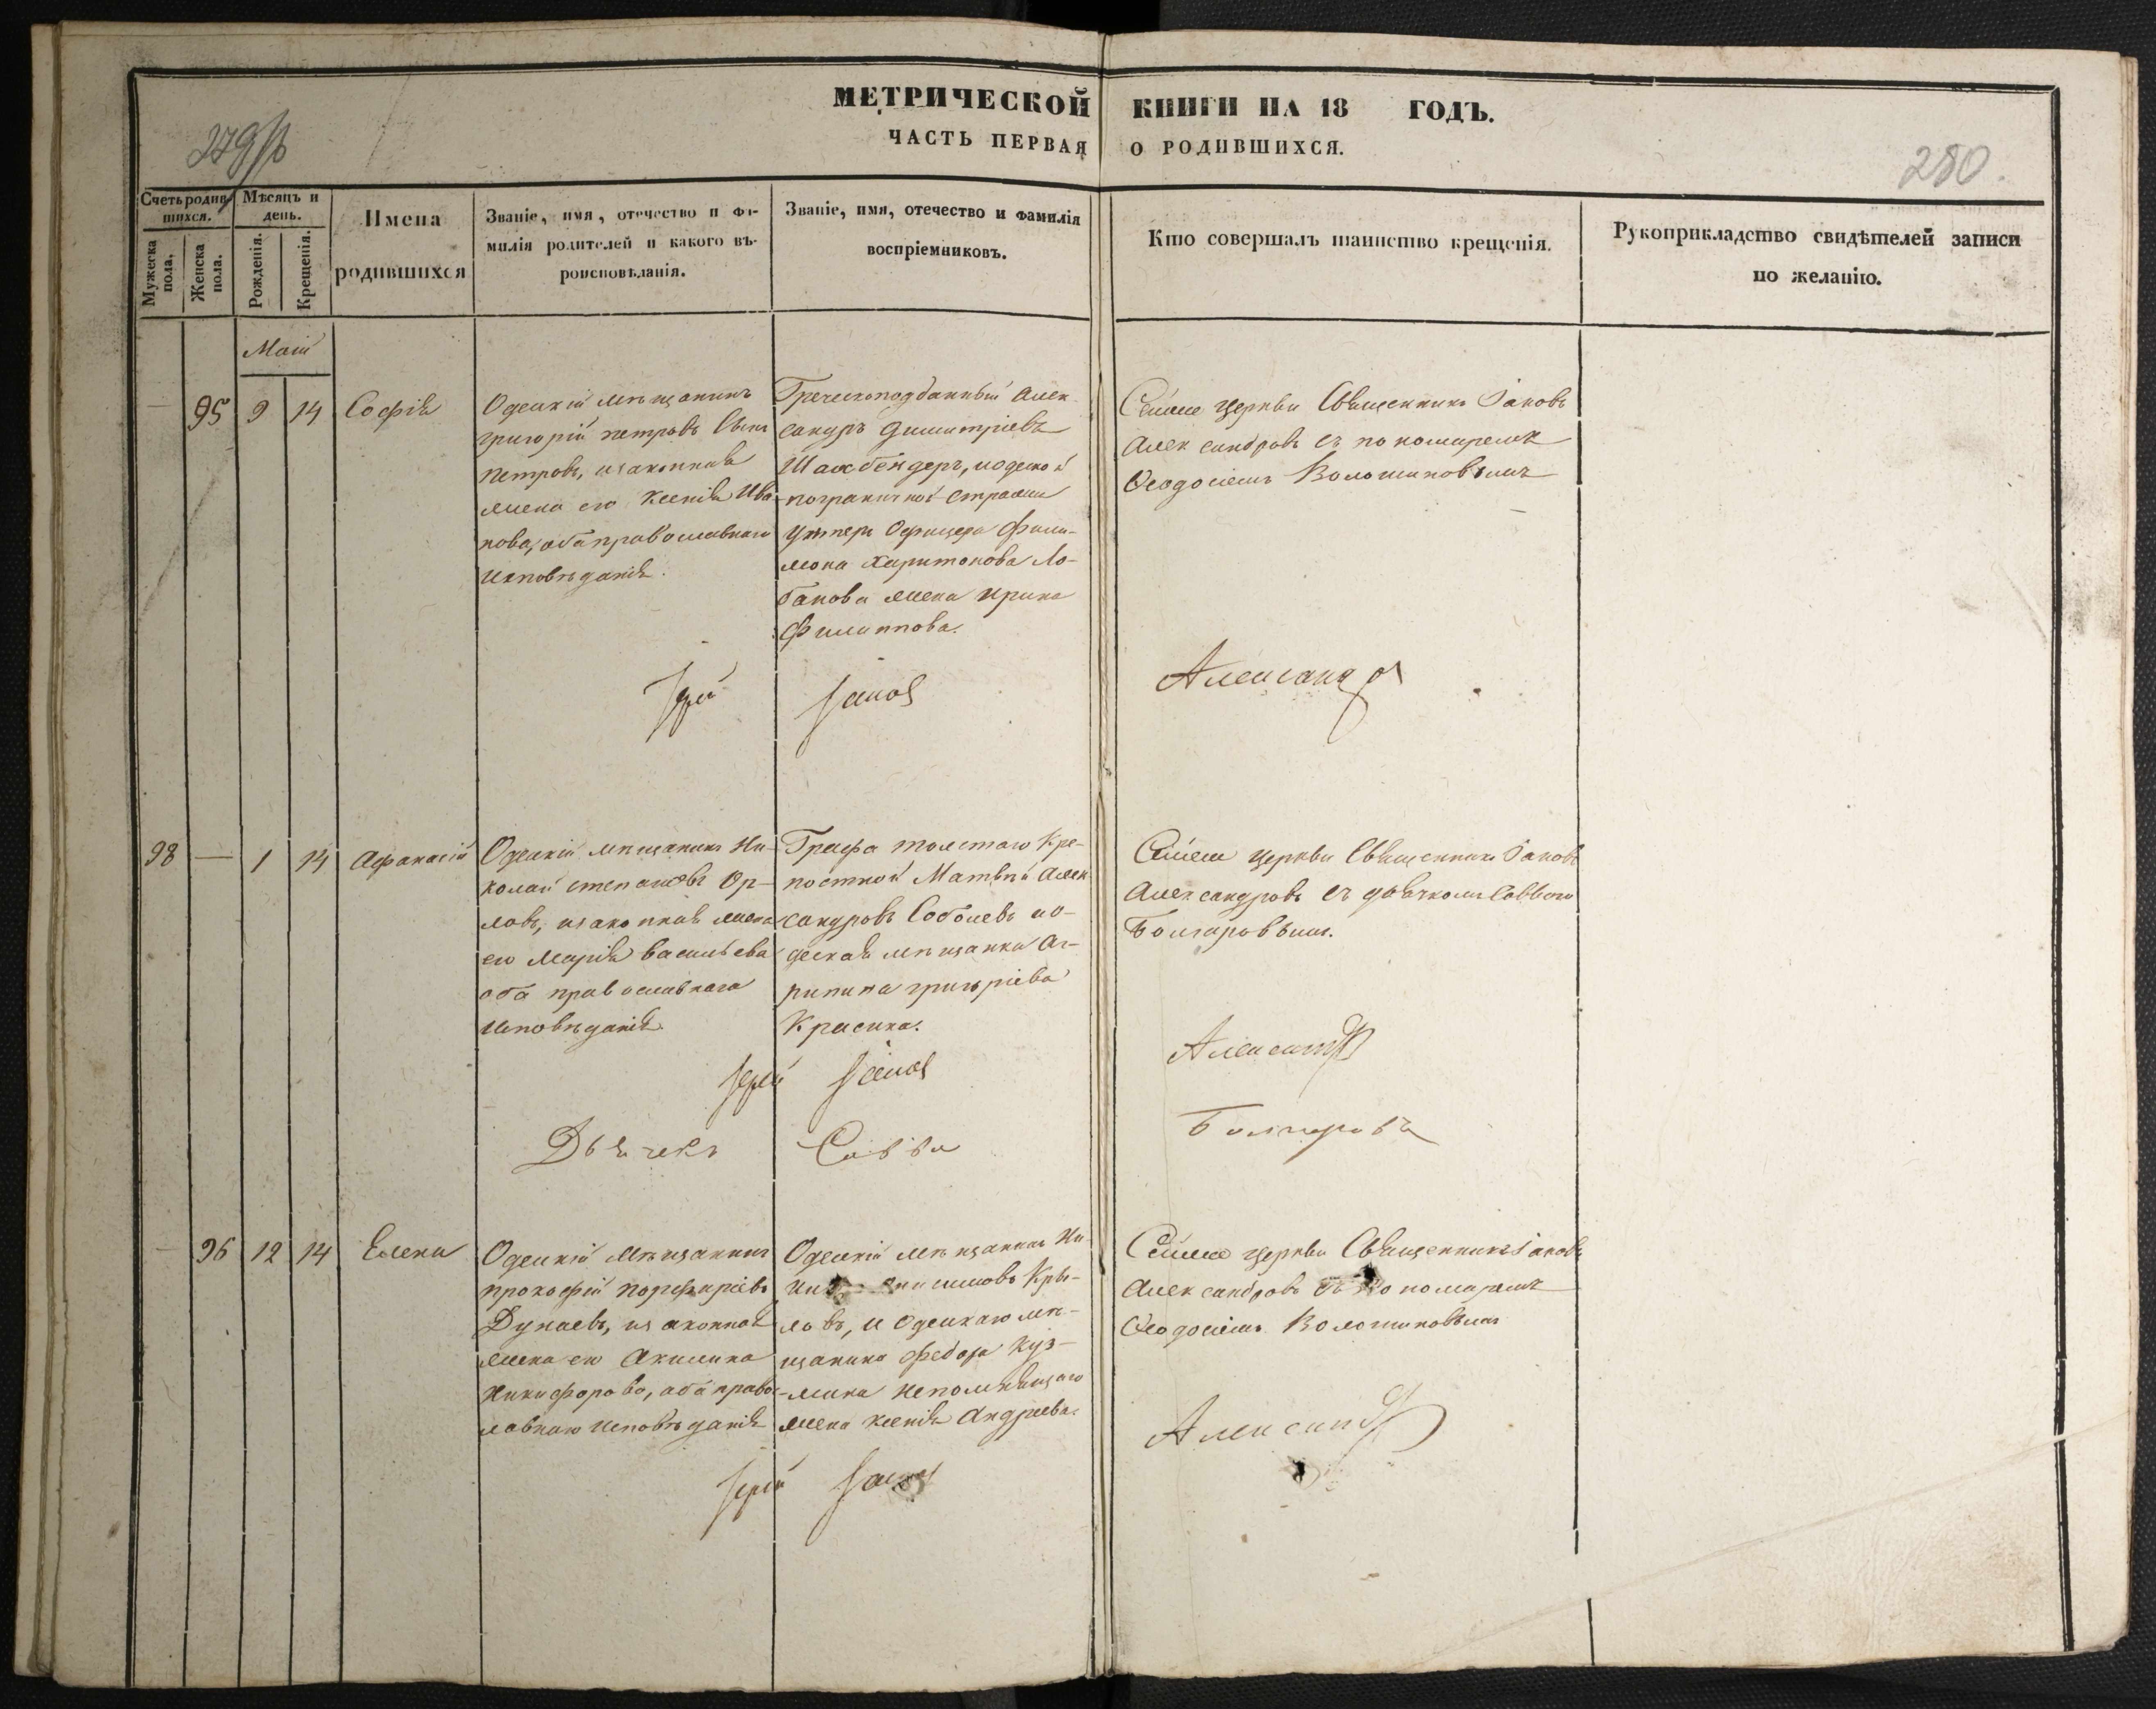 МЕТРИЧЕСКОЙ КНИГИ НА 18 ГОДЪ.
ЧАСТЬ ПЕРВАЯ О РОДИВШИХСЯ.
280.
Счетъ родив-
шихся.
Мужеска пола.
Женска пола.
Мѣсяцъ и
день.
Рожденія.
Крещенія.
Имена
родившихся
Званіе, имя, отечество и фа-
милія родителей и какого вѣ-
роисповѣданія.
Званіе, имя, отечество и фамилія
воспріемниковъ.
Кто совершалъ таинство крещенія.
Рукоприкладство свидѣтелей записи
по желанію.
Маій
— 95 9 14 Софія
Одескій мѣщанинъ
григорій петровъ сынъ
петровъ, изаконная
жена его Ксенія Ива
нова, оба православнаго
исповѣданія.
Греческоподданный Алек
сандръ димитріевъ
Шахбендеръ, иодеской
пограничной стражи
унтеръ Офицера Фили-
мона Харитонова Ло-
банова жена Ирина
Филиппова.
Сеймъ церкви Священникъ Іаковъ
Александровъ съ пономаремъ
Ѳеодосіемъ Волошиновымъ
Іерей Іаковъ Александр
98 — 1 14 Афанасій
Одескій мѣщанинъ Ни-
колай степановъ Ор-
ловъ, изаконная жена
его Марія васильева
оба православнаго
исповѣданія.
Графа толстаго Кре-
постной Матвѣй Алек
сандровъ Соболевъ ио-
деская мѣщанка Аг-
рипина григоріева
Красина.
Сеймъ церкви Священникъ Іаковъ
Александровъ съ дьячкомъ Саввою
Болгаровымъ.
Іерей Іаковъ Александр
Дьячекъ Савва Болгаровъ
— 96 12 14 Елена
Одескій мѣщанинъ
прокофій порфиріевъ
Дунаевъ, изаконная
жена его Акилина
Никифорова, оба правос-
лавнаго исповѣданія
Одескій мѣщанинъ Ни
Кры-
ловъ, и Одескаго мѣ-
щанина Федора Куз-
мина Непомнящаго
жена Ксенія Андреева.
Сеймъ церкви Священникъ Іаковъ
Александровъ съ пономаремъ
Ѳеодосіемъ Волошиновымъ
Іерей Іаковъ Александр